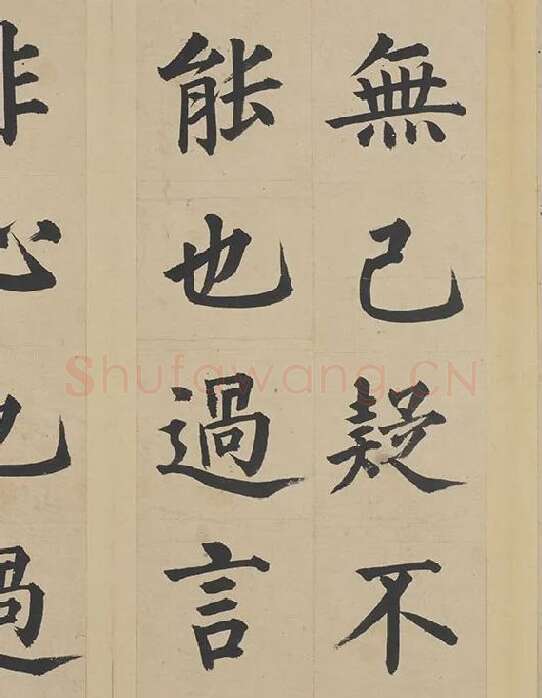 無己疑不
能也過言
非心也過
Shufawang.CN